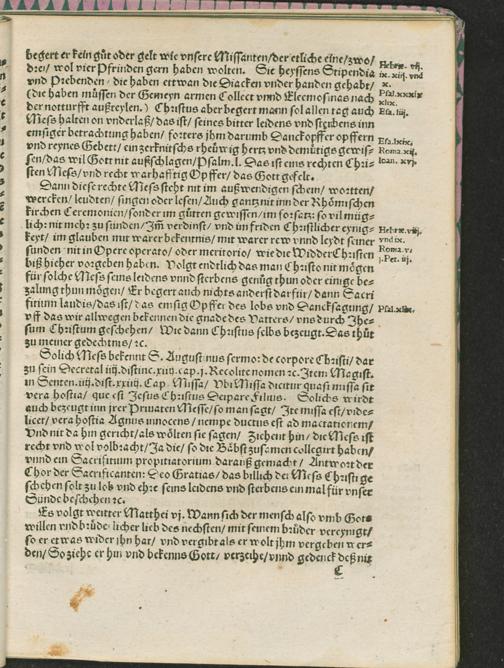 begert er kein güt oder gelt wie vnsere Missanten/der etliche eine/zwo/
drei/ wol vier Pfründen gern haben wolten. Sie heyssens Stipendia
vnd Prebenden/ die haben ettwan die Diacken vnder handen gehabt/
(die haben müssen der Gemeyn armen Collect vnnd Eleemosinas nach
der notturfft außteylen.) Christus aber begert mann sol allen tag auch
Mess halten on vnderlaß/ das ist/ seines bitter leidens vnd sterbens inn
emsiger betrachtung haben/ forders jhm darumb Danckopffer opffern
vnd reynes Gebett/ ein zerknischs rheüwig hertz vnd demütigs gewis-
sen/ das wil Gott nit außschlagen/ Psalm. l. Das ist eins rechten Chri-
sten Mess/ vnd recht warhafftig Opffer/ das Gott gefelt.
Dann diese rechte Mess steht nit im außwendigen schein/ wortten/
wercken/ leudten/ singen oder lesen/ Auch gantz nit inn der Rhömischen
kirchen Ceremonien/ sonder im gütten gewissen/ im forsatz so vil müg-
lich/ nit mehr zu sünden/ Jm verdinst/ vnd im friden Christlicher eynig-
keyt/ im glauben mit warer bekentnis/ mit warer rew vnnd leydt seiner
sünden/ nit in Opere operato/ oder meritorio/ wie die Widder Christen
biß hieher vorgeben haben. Volgt endtlich das man Christo nit mögen
für solche Mess seins leidens vnnd sterbens genüg thun oder einige be-
zalung thun mögen/ Er begert auch nichts anderst darfür/ dann Sacri
fitium laudis/ das ist/ das einsig Opffer des lobs vnd Dancksagung/
vff das wir allwegen bekennen die gnade des Vatters/ vns durch Jhe-
sum Christum geschehen/ Wie dann Christus selbs bezeugt. Das thüt
zu meiner gedechtnus/ ꝛc.
Solich Mess bekennt S. Augustinus sermo: de corpore Christi/ dar
zu sein Decretal iiij. distinc. xiij. cap. j. Recolite nomen ꝛc. Jtem Magist.
in Senten. iiij. dist. xxiiij. Cap. Missa/ Vbi Missa dicitur quasi missa sit
vera hostia/ que est Jesus Christus Dei patre filius. Solichs wirdt
auch bezeugt inn jrer Priuaten Messe/ so man sagt/ Jte missa est/ vide-
licet/ vera hostia Agnus innocens/ nempe ductus est ad mactationem/
Vnd nit da hin gericht/ als wölten sie sagen/ Ziehent hin/ die Mess ist
recht vnd wol volbracht/ Ja die/ so die Bäbst zusamen collegirt haben/
vnnd ein Sacrifitium propitiatorium darauß gemacht/ Antwort der
Chor der Sacrificanten: Deo Gratias/ das billich der Mess Christi ge
schehen solt zu lob vnd ehre seins leidens vnd sterbens ein mal für vnser
Sünde beschehen ꝛc.
Es volgt weitter Matthei vj. Wann sich der mensch also vmb Gots
willen vnd brüderlicher lieb des nechsten/ mit seinem brüder vereynigt/
so er etwas wider ihn har/ vnd vergibt als er wolt jhm vergeben wer-
den/ So ziehe er hin vnd bekenns Gott/ verzeihe/ vnnd gedenck deß nit
C
Hebre. vij.
ix. xiij. vnd
x.
Psal. xxxix
xlix.
Esa. iiij.
Esa. lxix.
Roma. xij.
Joan. xvj.
Hebre. viij.
vnd ix.
Roma. v.
j. Pet. iij.
Psal. xlix.